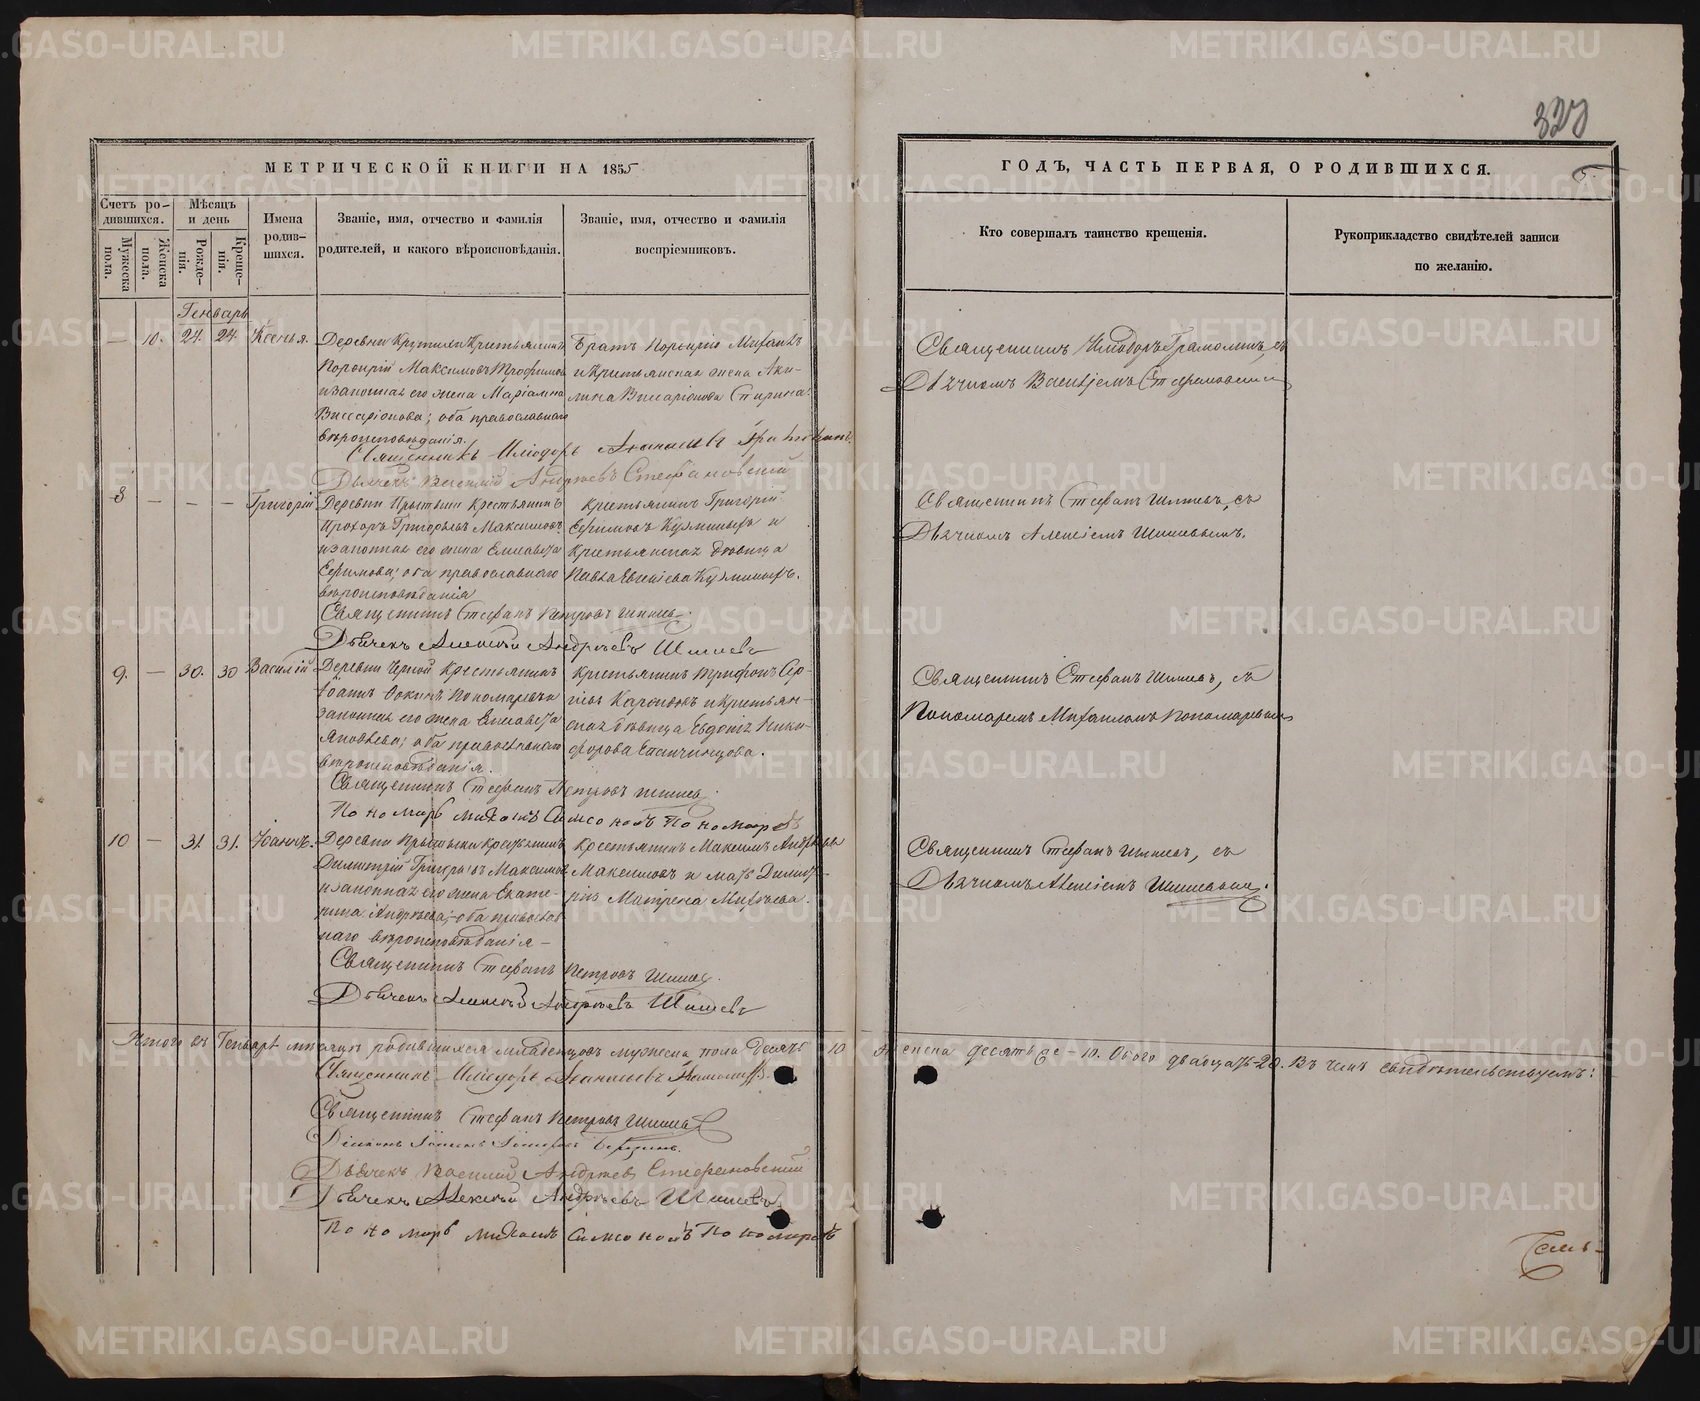 327
МЕТРИЧЕСКОЙ КНИГИ НА 1855
ГОДЪ, ЧАСТЬ ПЕРВАЯ, О РОДИВШИХСЯ.
5.
Счетъ ро-
дившихся.
Мужеска пола.
Женска пола.
Мѣсяцъ
и день
Рожде-
нія.
Креще-
нія.
Имена
родив-
шихся.
Званіе, имя, отчество и фамилія
родителей, и какого вѣроисповѣданія.
Званіе, имя, отчество и фамилія
воспріемниковъ.
Кто совершалъ таинство крещенія.
Рукоприкладство свидѣтелей записи
по желанію.
Генварь
— 10. 24. 24. Ксенья.
Деревни Крестьянинъ
Порфирій Максимовъ Трофимовъ
и законная его жена Маріамна
Виссаріонова; оба православнаго
вѣроисповѣданія.
Братъ Порфирія Михаилъ
и крестьянская жена Аку-
лина Виссаріонова
Священникъ Иліодоръ съ
Дьячкомъ Васильемъ Стефановскимъ
Священникъ Иліодоръ Афанасьевъ
Дьячекъ Василій Андреевъ Стефановскій
8 — — — Григорій
Деревни Крестьянинъ
Прохоръ Григорьевъ Максимовъ
и законная его жена Елисавета
Ефимова; оба православнаго
вѣроисповѣданія
Крестьянинъ Григорій
Ефимовъ и
крестьянская дѣвица
Священникъ Стефанъ Шишевъ, съ
Дьячкомъ Алексіемъ Шишевымъ.
Священникъ Стефанъ Петровъ Шишевъ.
Дьячекъ Алексѣй Андреевъ Шишевъ
9. — 30. 30 Василій
Деревни Черной Крестьянинъ
Іоаннъ Пономаревъ и
законная его жена Елисавета
Яковлева; оба православнаго
вѣроисповѣданія.
Крестьянинъ Трифонъ Сер-
гіевъ и крестьян-
ская дѣвица Евдокія Ники-
форова Епанчинцова.
Священникъ Стефанъ Шишевъ, съ
Пономаремъ Михаиломъ Пономаревымъ
Священникъ Стефанъ Петровъ Шишевъ.
Пономарь Михаилъ Симсоновъ Пономаревъ
10 — 31. 31. Іоаннъ.
Деревни Крестьянинъ
Димитрій Григорьевъ Максимовъ
и законная его жена Екате-
рина Андреева; оба православ-
наго вѣроисповѣданія —
Крестьянинъ Максимъ Андреевъ
Максимовъ и мать Димит-
рія Матрена Михѣева.
Священникъ Стефанъ Шишевъ, съ
Дьячкомъ Алексіемъ Шишевымъ.
Священникъ Стефанъ Петровъ Шишевъ.
Дьячекъ Алексѣй Андреевъ Шишевъ
Итого въ Генварѣ мѣсяцѣ родившихся младенцовъ мужеска пола десять 10 женска десять же — 10. Обоего двадцать — 20. Въ чемъ свидѣтельствуемъ:
Священникъ Иліодоръ Афанасьевъ
Священникъ Стефанъ Петровъ Шишевъ
Діаконъ
Дьячекъ Василій Андреевъ Стефановскій
Дьячекъ Алексѣй Андреевъ Шишевъ
Пономарь Михаилъ Симсоновъ Пономаревъ
METRIKI.GASO-URAL.RU